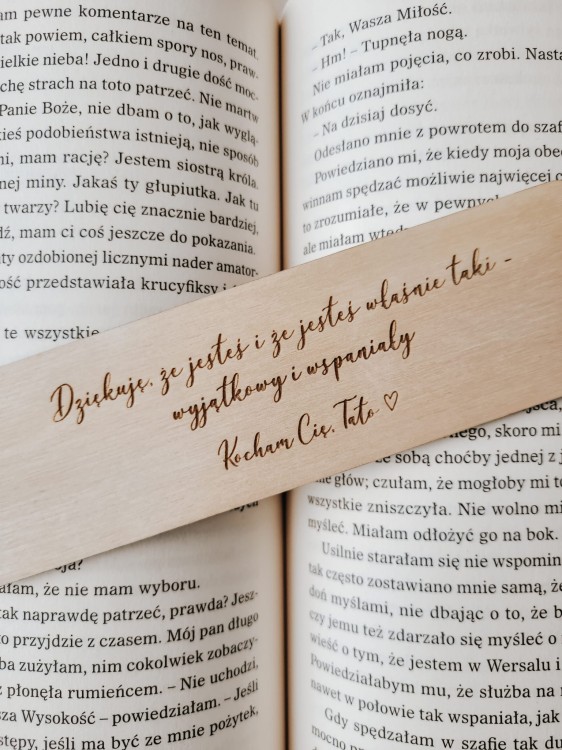 am pewne komentarze na ten temat.
tak powiem, całkiem spory nos, praw-
ielkie nieba! Jedno i drugie dość moc-
chę strach na toto patrzeć. Nie martw
Panie Boże, nie dbam o to, jak wyglą-
kieś podobieństwa istnieją, nie sposób
ni, mam rację? Jestem siostrą króla.
nej miny. Jakaś ty głupiutka. Jak tu
twarzy? Lubię cię znacznie bardziej,
dź, mam ci coś jeszcze do pokazania.
ty ozdobionej licznymi nader amator-
ość przedstawiała krucyfiksy i
te wszystkie
– Tak, Wasza Miłość.
– Hm! – Tupnęła nogą.
Nie miałam pojęcia, co zrobi. Nasta
W końcu oznajmiła:
– Na dzisiaj dosyć.
Odesłano mnie z powrotem do szaf
Powiedziano mi, że kiedy moja obec
winnam spędzać możliwie najwięcej c
to zrozumiałe, że w pewnych
ale miałam wtedy
Dziękuję, że jesteś i że jesteś właśnie taki -
wyjątkowy i wspaniały
Kocham Cię, Tato ♡
ałam, że nie mam wyboru.
tak naprawdę patrzeć, prawda? Jesz-
o przyjdzie z czasem. Mój pan długo
ba zużyłam, nim cokolwiek zobaczy-
z płonęła rumieńcem. – Nie uchodzi,
sza Wysokość – powiedziałam. – Jeśli
stępy, jeśli ma być ze mnie pożytek,
nego, skoro mi
sobą choćby jednej z j
głów; czułam, że mogłoby mi to
wszystkie zniszczyła. Nie wolno mi
myśleć. Miałam odłożyć go na bok.
Usilnie starałam się nie wspomin
tak często zostawiano mnie samą, że
doń myślami, nie dbając o to, że b
czy jemu też zdarzało się myśleć o
wieść o tym, że jestem w Wersalu i
Powiedziałabym mu, że służba na
nawet w połowie tak wspaniała, jak
Gdy spędzałam w szafie tak du